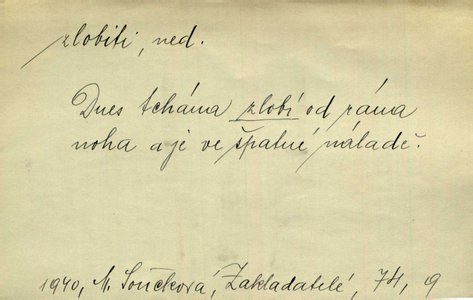 zlobiti, ned.
Dnes tchána zlobí od rána
noha a je ve špatné náladě.
1940, M. Součková, Zakladatelé, 74, 9